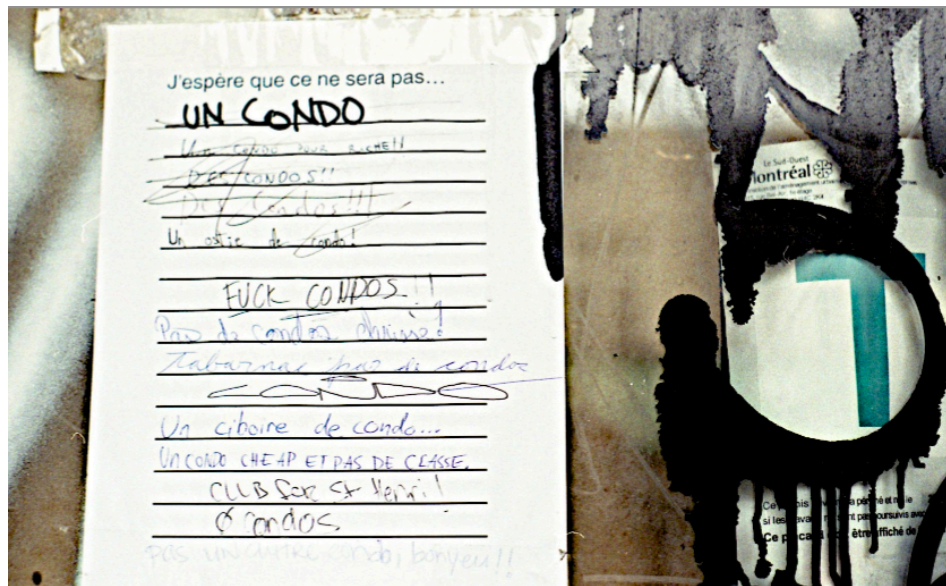 J'espère que ce ne sera pas...
UN CONDO
Un condo pour riche!!
DES CONDOS!!
Des Condos!!!
Un ostie de condo!
FUCK CONDOS!!
Pas de condos chrisse!
Tabarnac pas de condos
CONDO
Un ciboire de condo...
UN CONDO CHEAP ET PAS DE CLASSE.
CLUB SOR St Henri!
Ø condos
pas un autre condo, bonyeu!!
Le Sud-Ouest
Montréal
T
Ce
si les
Ce
être affiché de